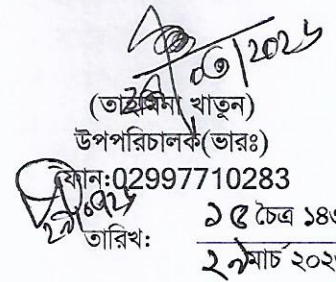 ২৯/০৩/২০২৬
(তাহমিনা খাতুন)
উপপরিচালক(ভারঃ)
ফোন:02997710283
তারিখ:
১৫ চৈত্র ১৪৩
২৯মার্চ ২০২